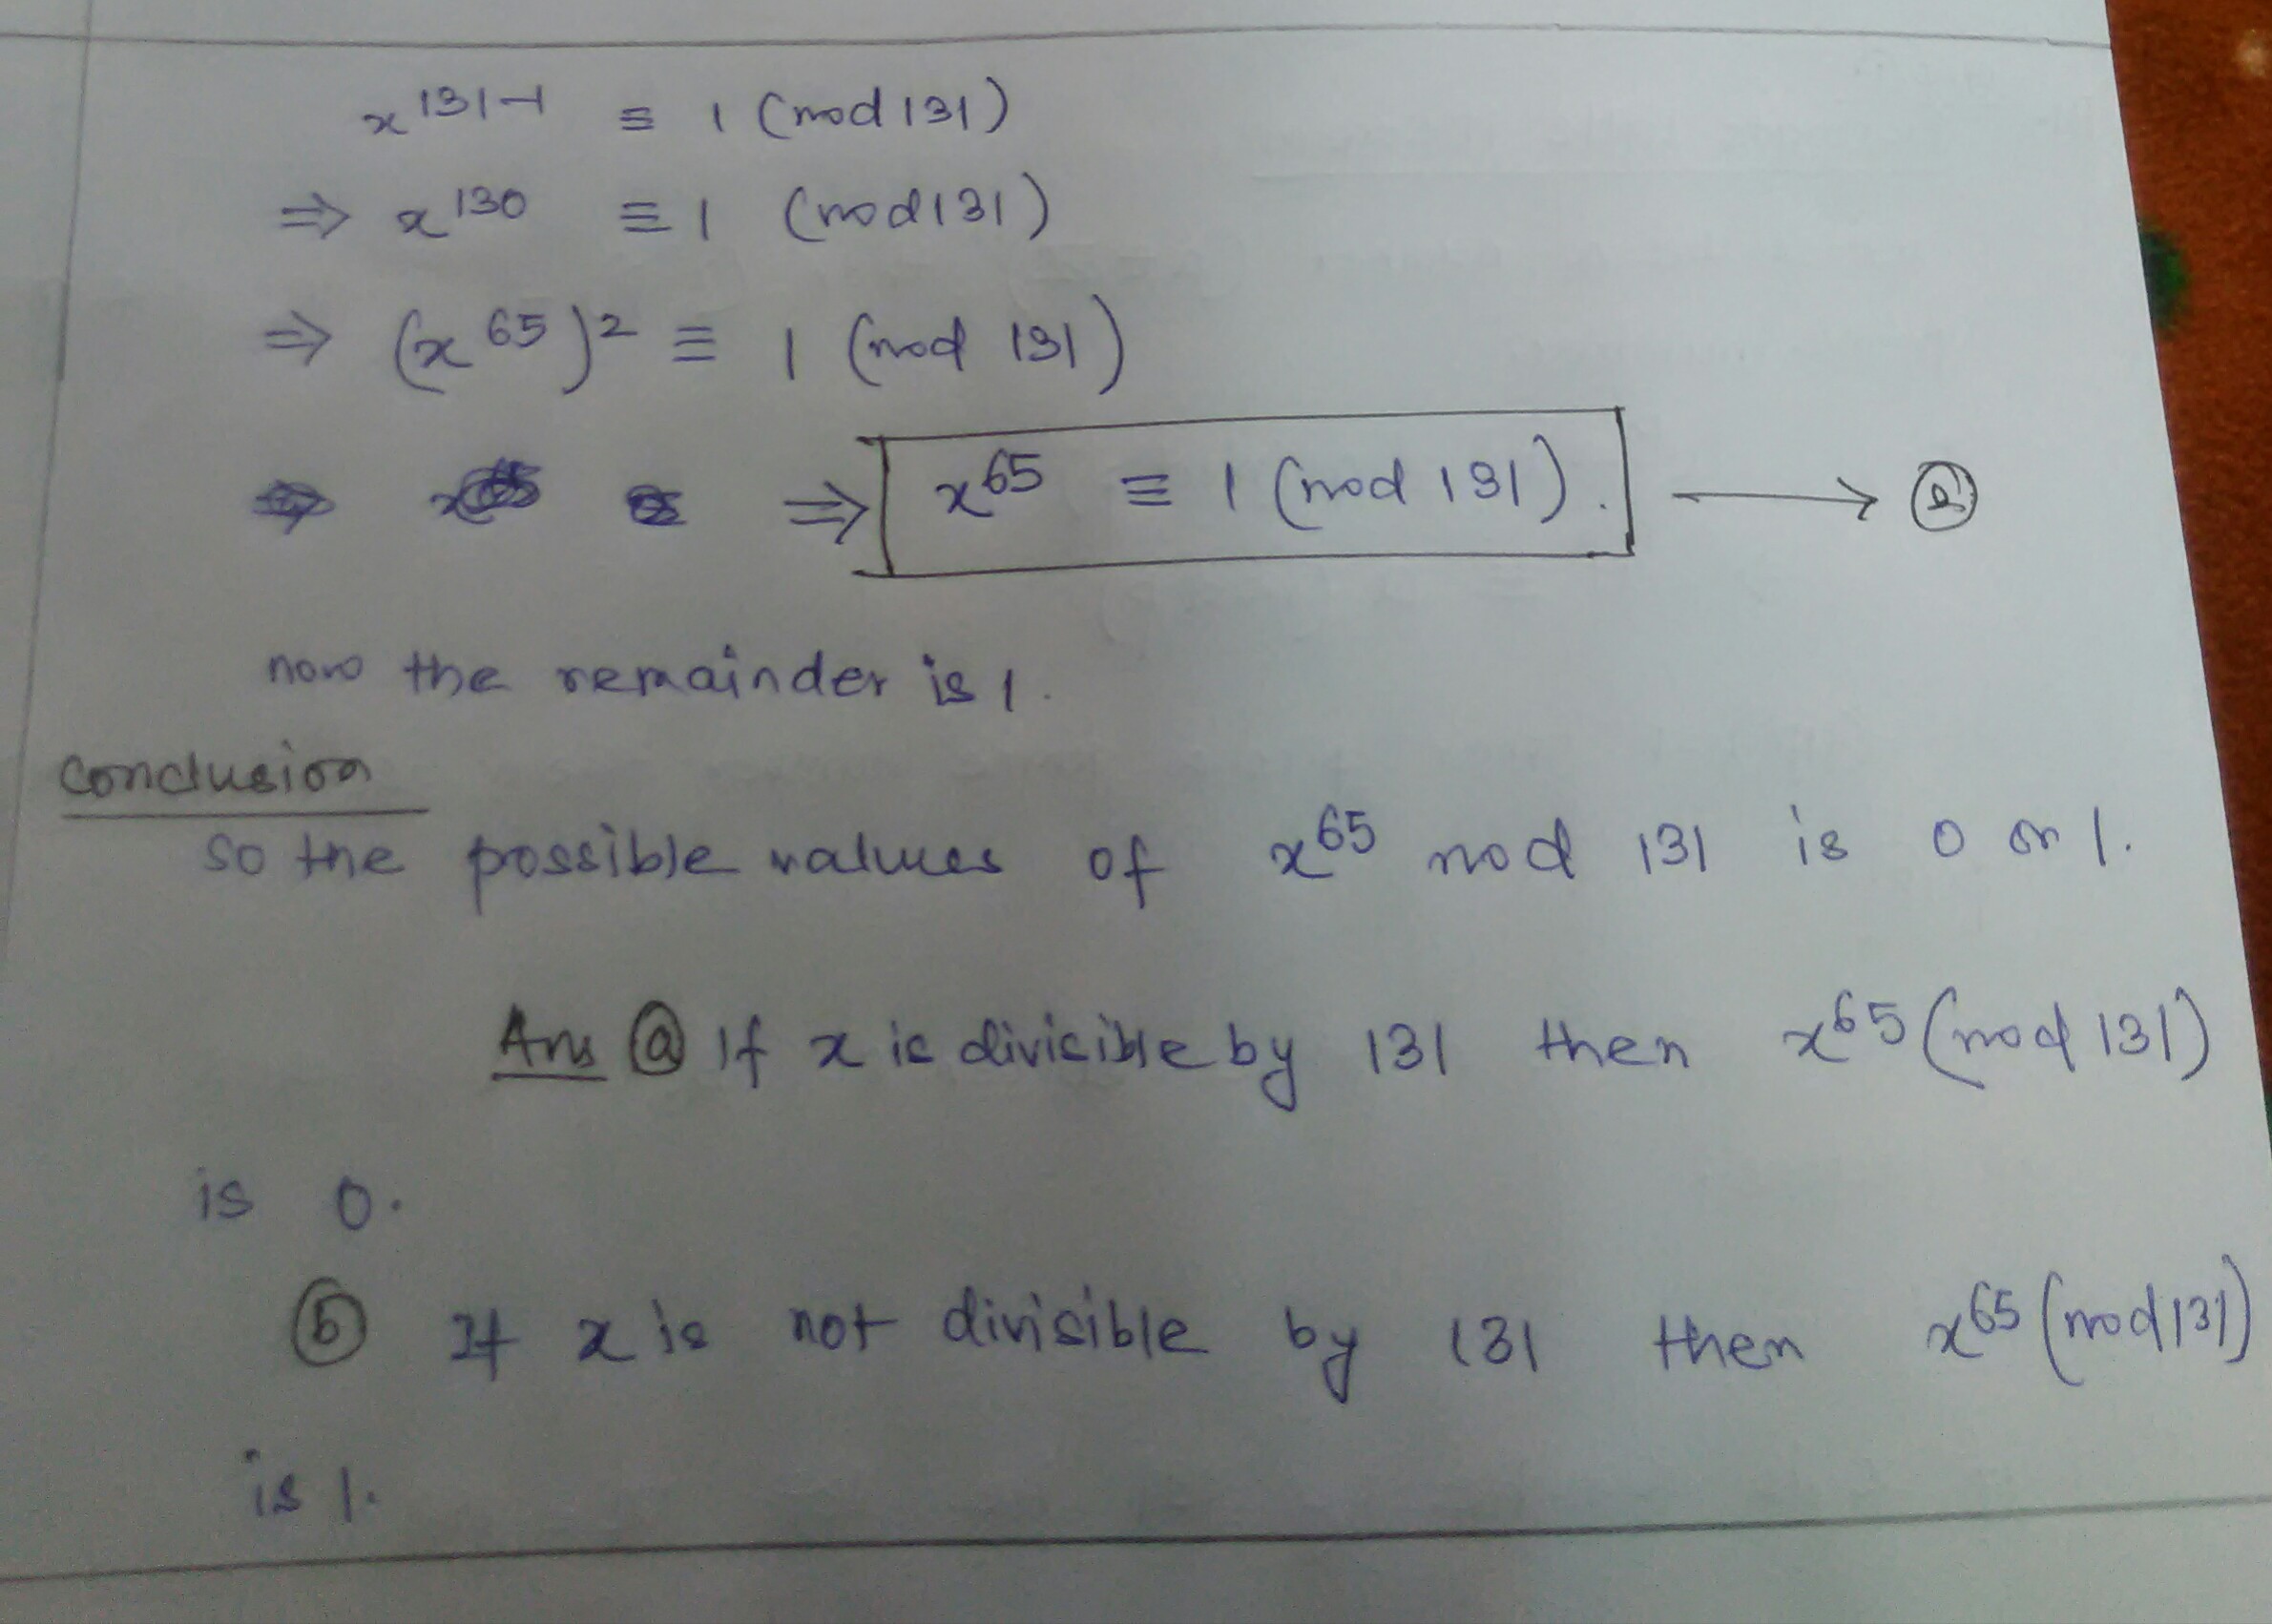 x^131-1 ≡ 1 (mod 131)
⇒ x^130 ≡ 1 (mod 131)
⇒ (x^65)^2 ≡ 1 (mod 131)
⇒ x^65 ≡ 1 (mod 131). → ②
now the remainder is 1.
Conclusion
so the possible values of x^65 mod 131 is 0 or 1.
Ans ⓐ If x is divisible by 131 then x^65 (mod 131)
is 0.
ⓑ If x is not divisible by 131 then x^65 (mod 131)
is 1.